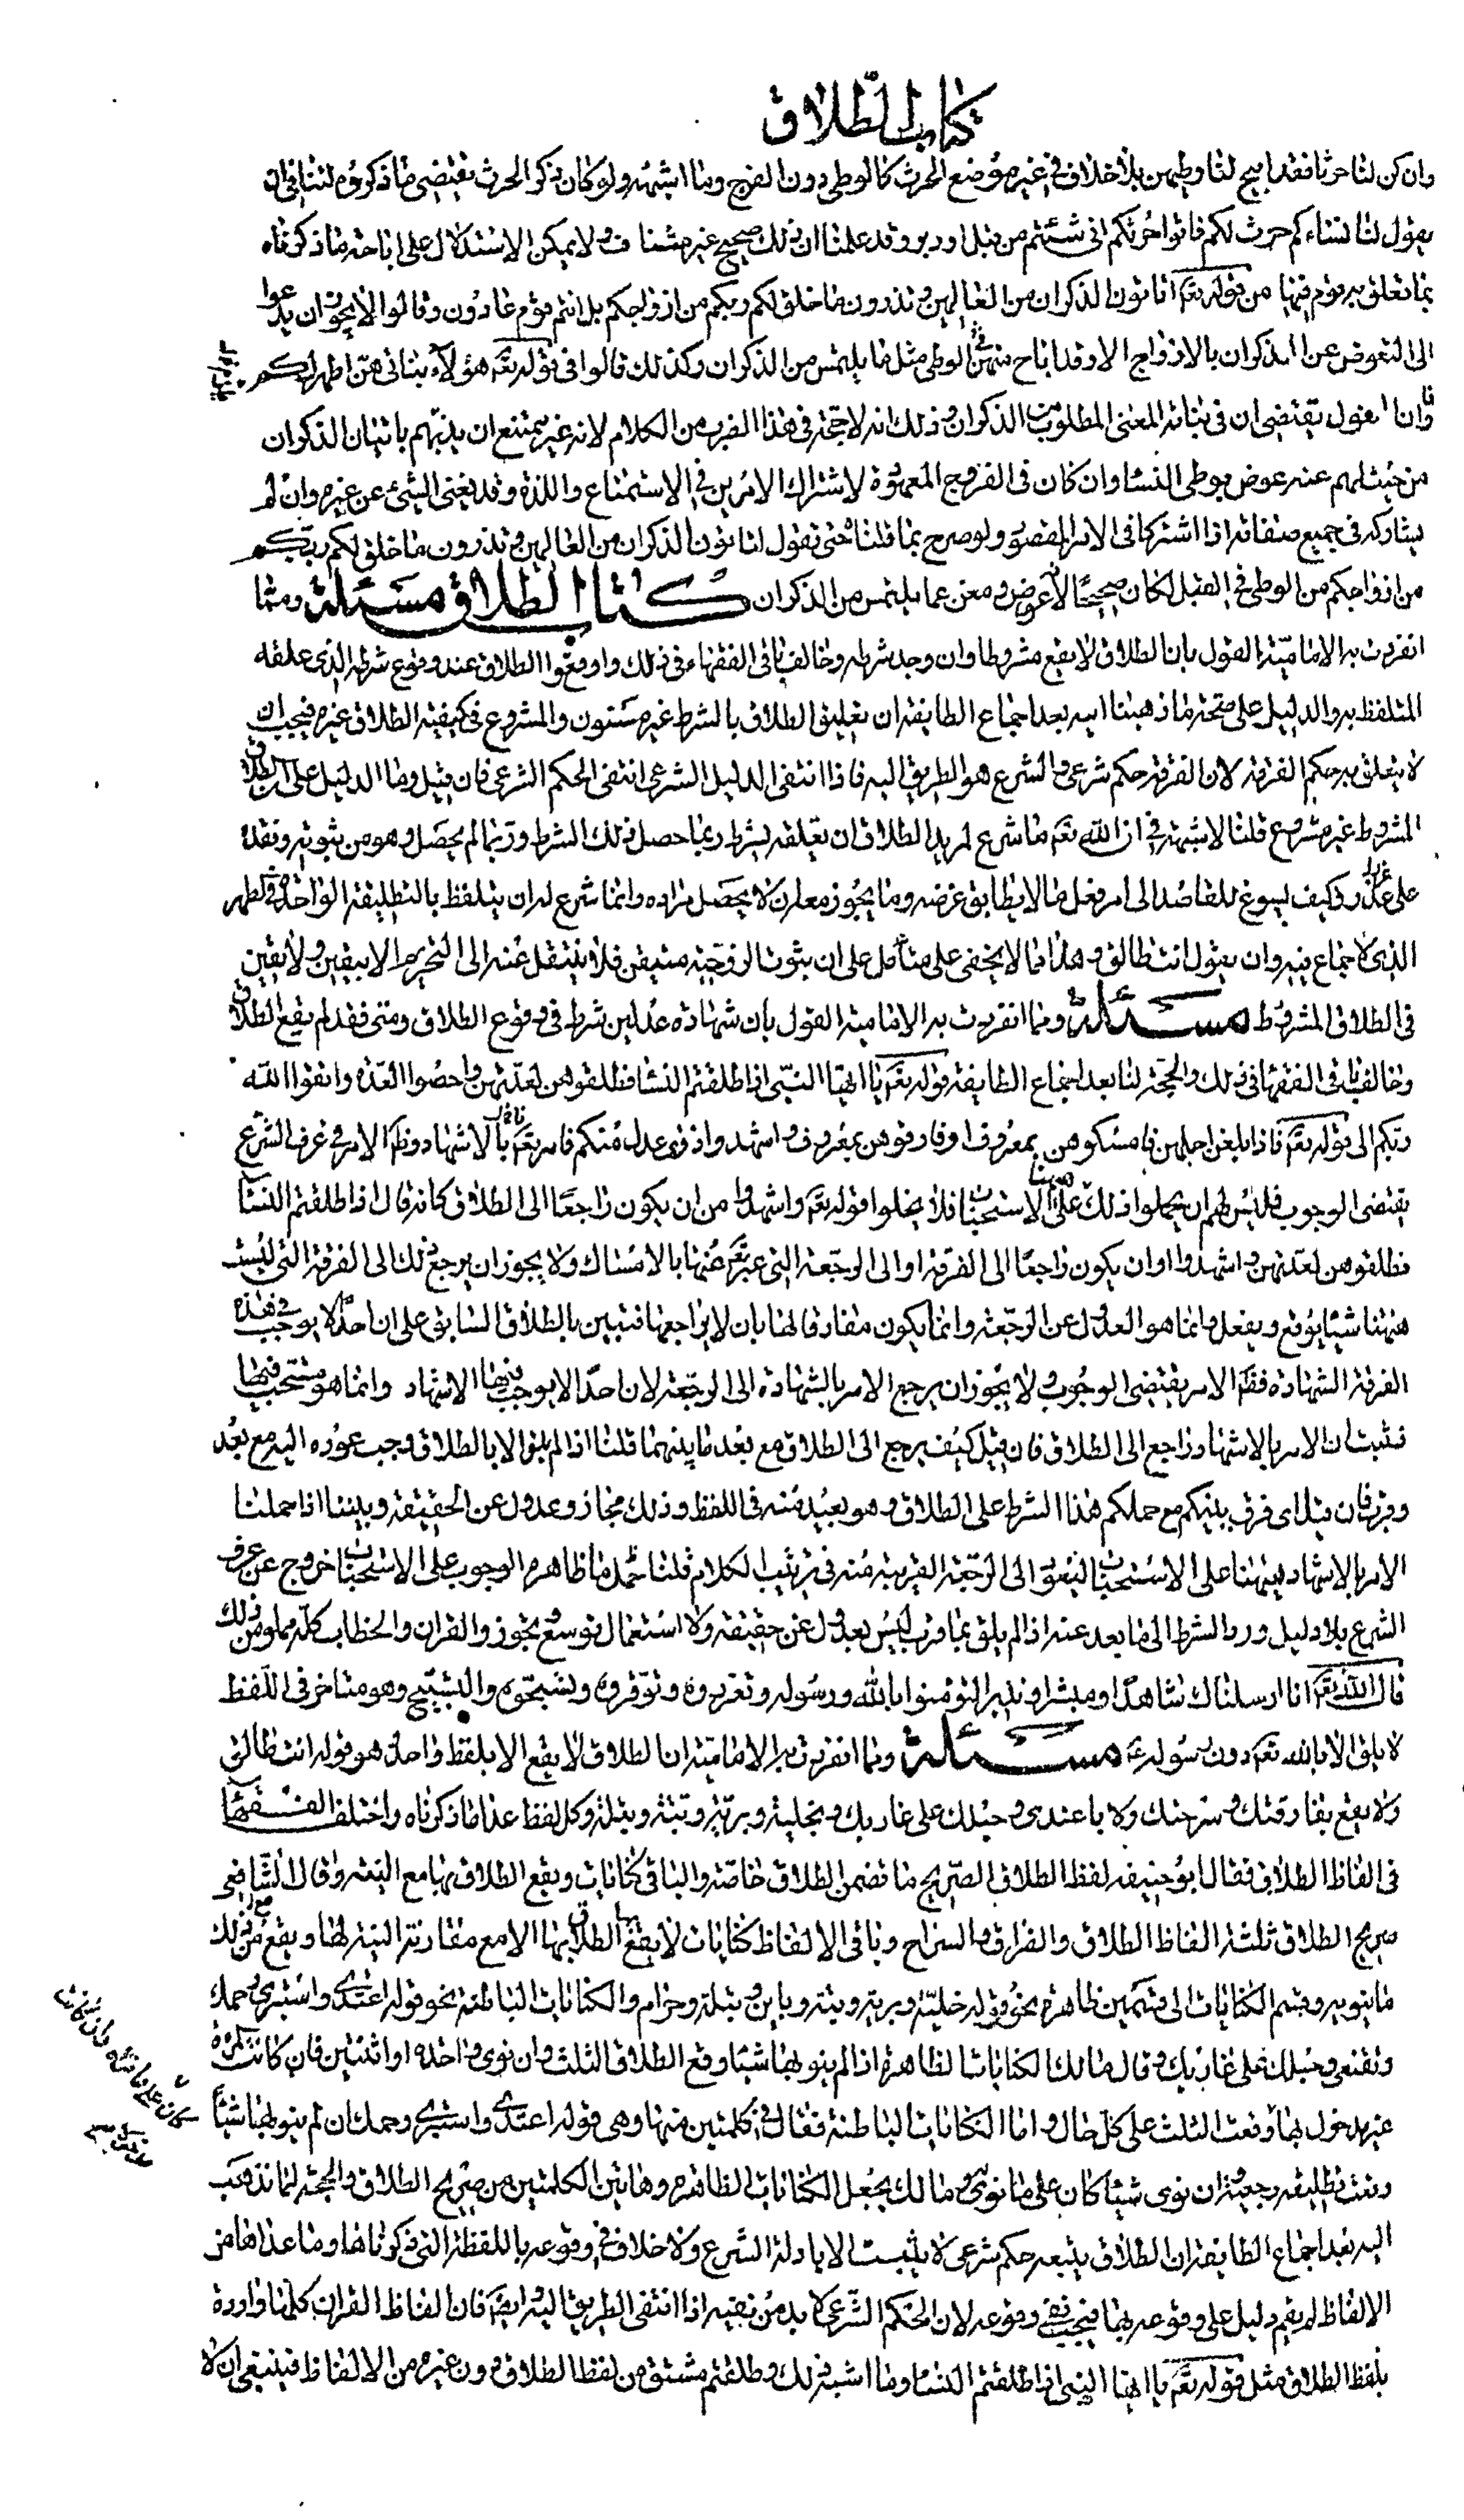 كتاب الطلاق
وان كن لنا حرثا فقد ابيح لنا وطيهن بلا خلاف في غير موضع الحرث كالوطي دون الفرج وما اشبهه ولو كان ذكر الحرث يقتضي ما ذكروه لتنافى ان
يقول لنا نساءكم حرث لكم فاتوا حرثكم انى شئتم من قبل او دبر وقد علمنا ان ذلك صحيح غير متناف ولا يمكن الاستدلال على اباحة ما ذكرناه
بما تعلق به قوم فيها من قوله تع اتاتون الذكران من العالمين وتذرون ما خلق لكم ربكم من ازواجكم بل انتم قوم عادون وقالوا لا يجوز ان يدعوا
الى التعوض عن الذكران بالازواج الا وقد اباح منهن في الوطي مثل ما يلتمس من الذكران وكذلك قالوا في قوله تع هؤلاء بناتي هن اطهر لكم
فان القول يقتضي ان في بناته المعنى المطلوب من الذكران وذلك انه لا حجة في هذا الضرب من الكلام لانه غير ممتنع ان يذمهم باتيان الذكران
من حيث لهم عنه عوض بوطي النساء وان كان في الفروج المعهودة لاشتراك الامرين في الاستمتاع واللذة وقد يغني الشئ عن غيره وان لم
يشاركه في جميع صفاته اذا اشتركا في الامر المقصود ولو صرح بما قلناه حتى نقول اتاتون الذكران من العالمين وتذرون ما خلق لكم ربكم
من ازواجكم من الوطي في القبل لكان صحيحا لانه عوض ومغن عما يلتمس من الذكران كتاب الطلاق مسئلة ومما
انفردت به الامامية القول بان الطلاق لا يقع مشروطا وان وجد شرطه وخالف باقي الفقهاء في ذلك واوقعوا الطلاق عند وقوع شرطه الذي علقه
المتلفظ به والدليل على صحة ما ذهبنا اليه بعد اجماع الطايفة ان تعليق الطلاق بالشرط غير مسنون والمشروع في كيفية الطلاق غيره فيجب ان
لا يتعلق به حكم الفرقة لان الفرقة حكم شرعي والشرع هو الطريق اليه فاذا انتفى الدليل الشرعي انتفى الحكم الشرعي فان قيل وما الدليل على ان الطلاق
المشروط غير مشروع قلنا لا شبهة في ان الله تع ما شرع لمريد الطلاق ان يعلقه بشرط ربما حصل ذلك الشرط وربما لم يحصل وهو من ثبوته وفقده
على غرر وكيف يسوغ للقاصد الى امر فعل ما لا يطابق غرضه وما يجوز معه ان لا يحصل مراده وانما شرع له ان يتلفظ بالتطليقة الواحدة في طهر
الذي لا جماع فيه وان يقول انت طالق وهذا مما لا يخفى على متامل على ان ثبوت الزوجية متيقن فلا ينتقل عنه الى التحريم الا بيقين ولا يقين
في الطلاق المشروط مسئلة ومما انفردت به الامامية القول بان شهادة عدلين شرط في وقوع الطلاق ومتى فقد لم يقع الطلاق
وخالف باقي الفقهاء في ذلك والحجة لنا بعد اجماع الطايفة قوله تع يا ايها النبي اذا طلقتم النساء فطلقوهن لعدتهن واحصوا العدة واتقوا الله
ربكم الى قوله تع فاذا بلغن اجلهن فامسكوهن بمعروف او فارقوهن بمعروف واشهدوا ذوى عدل منكم فامر تع بالاشهاد وظاهر الامر في عرف الشرع
يقتضي الوجوب فليس لهم ان يحملوا ذلك ههنا على الاستحباب فلا يخلوا قوله تع واشهدوا من ان يكون راجعا الى الطلاق كانه قال اذا طلقتم النساء
فطلقوهن لعدتهن واشهدوا او ان يكون راجعا الى الفرقة او الى الرجعة التي عبر تع عنها بالامساك ولا يجوز ان يرجع ذلك الى الفرقة التي ليست
ههنا شيئا يوقع ويفعل وانما هو العدول عن الرجعة وانما يكون مفارقا لها بان لا يراجعها فتبين بالطلاق السابق على ان احدا لا يوجب في هذه
الفرقة الشهادة فظاهر الامر يقتضي الوجوب ولا يجوز ان يرجع الامر بالشهادة الى الرجعة لان احدا لا يوجب فيها الاشهاد وانما هو مستحب فيها
فثبت ان الامر بالاشهاد راجع الى الطلاق فان قيل كيف يرجع الى الطلاق مع بعد ما بينهما قلنا اذا لم يلق الا بالطلاق وجب عوده اليه مع بعد
وقرب فان قيل اى فرق بينكم مع حملكم هذا الشرط على الطلاق وهو بعيد منه في اللفظ وذلك مجاز وعدول عن الحقيقة وبيننا اذا حملنا
الامر بالاشهاد ههنا على الاستحباب ليعود الى الرجعة القريبة منه في ترتيب الكلام قلنا حمل ما ظاهره الوجوب على الاستحباب خروج عن عرف
الشرع بلا دليل ورد الشرط الى ما بعد عنه اذا لم يلق بما قرب ليس بعدول عن حقيقة ولا استعمال توسع وتجوز والقران والخطاب كله مملو من ذلك
قال الله تع انا ارسلناك شاهدا ومبشرا ونذيرا لتؤمنوا بالله ورسوله وتعزروه وتوقروه وتسبحوه والتسبيح وهو متاخر في اللفظ
لا يلق الا بالله تع دون رسوله ع مسئلة ومما انفردت به الامامية ان الطلاق لا يقع الا بلفظ واحد وهو قوله انت طالق
ولا يقع بفارقتك وسرحتك ولا باعتدى وحبلك على غاربك وبخلية وبرية وبتة وبتلة وكل لفظ عدا ما ذكرناه واختلف الفقهاء
في الفاظ الطلاق فقال ابو حنيفة لفظ الطلاق الصريح ما تضمن الطلاق خاصة والباقي كنايات ويقع الطلاق بها مع النية وقال الشافعي
صريح الطلاق ثلثة الفاظ الطلاق والفراق والسراح وباقي الالفاظ كنايات لا يقع الطلاق بها الا مع مقارنة النية لها ويقع مع ذلك
ما ينويه وقسم الكنايات الى قسمين ظاهرة نحو قوله خلية وبرية وبتة وباين وبتلة وحرام والكنايات الباطنة نحو قوله اعتدى واستبرى رحمك
وتقنعى وحبلك على غاربك وقال مالك الكنايات الظاهرة اذا لم ينو بها شيئا وقع الطلاق الثلث وان نوى واحدة او اثنتين فان كانت المرءة
غير مدخول بها وقعت الثلث على كل حال واما الكنايات الباطنة فقال في كلمتين منها وهي قوله اعتدى واستبرى رحمك ان لم ينو بها شيئا
وقعت تطليقة رجعية وان نوى شيئا كان على ما نوى ومالك يجعل الكنايات الظاهرة وهاتين الكلمتين من صريح الطلاق والحجة لما نذهب
اليه بعد اجماع الطايفة ان الطلاق يتبعه حكم شرعي لا يثبت الا بادلة الشرع ولا خلاف في وقوعه باللفظة التي ذكرناها وما عداها من
الالفاظ لم يقم دليل على وقوعه بها فيجب نفى وقوعه لان الحكم الشرعي لا بد من نفيه اذا انتفى الطريق اليه وايضا فان الفاظ القران كلها واردة
بلفظ الطلاق مثل قوله تع يا ايها النبي اذا طلقتم النساء وما اشبه ذلك وطلقتم مشتق من لفظ الطلاق دون غيره من الالفاظ فينبغي ان لا